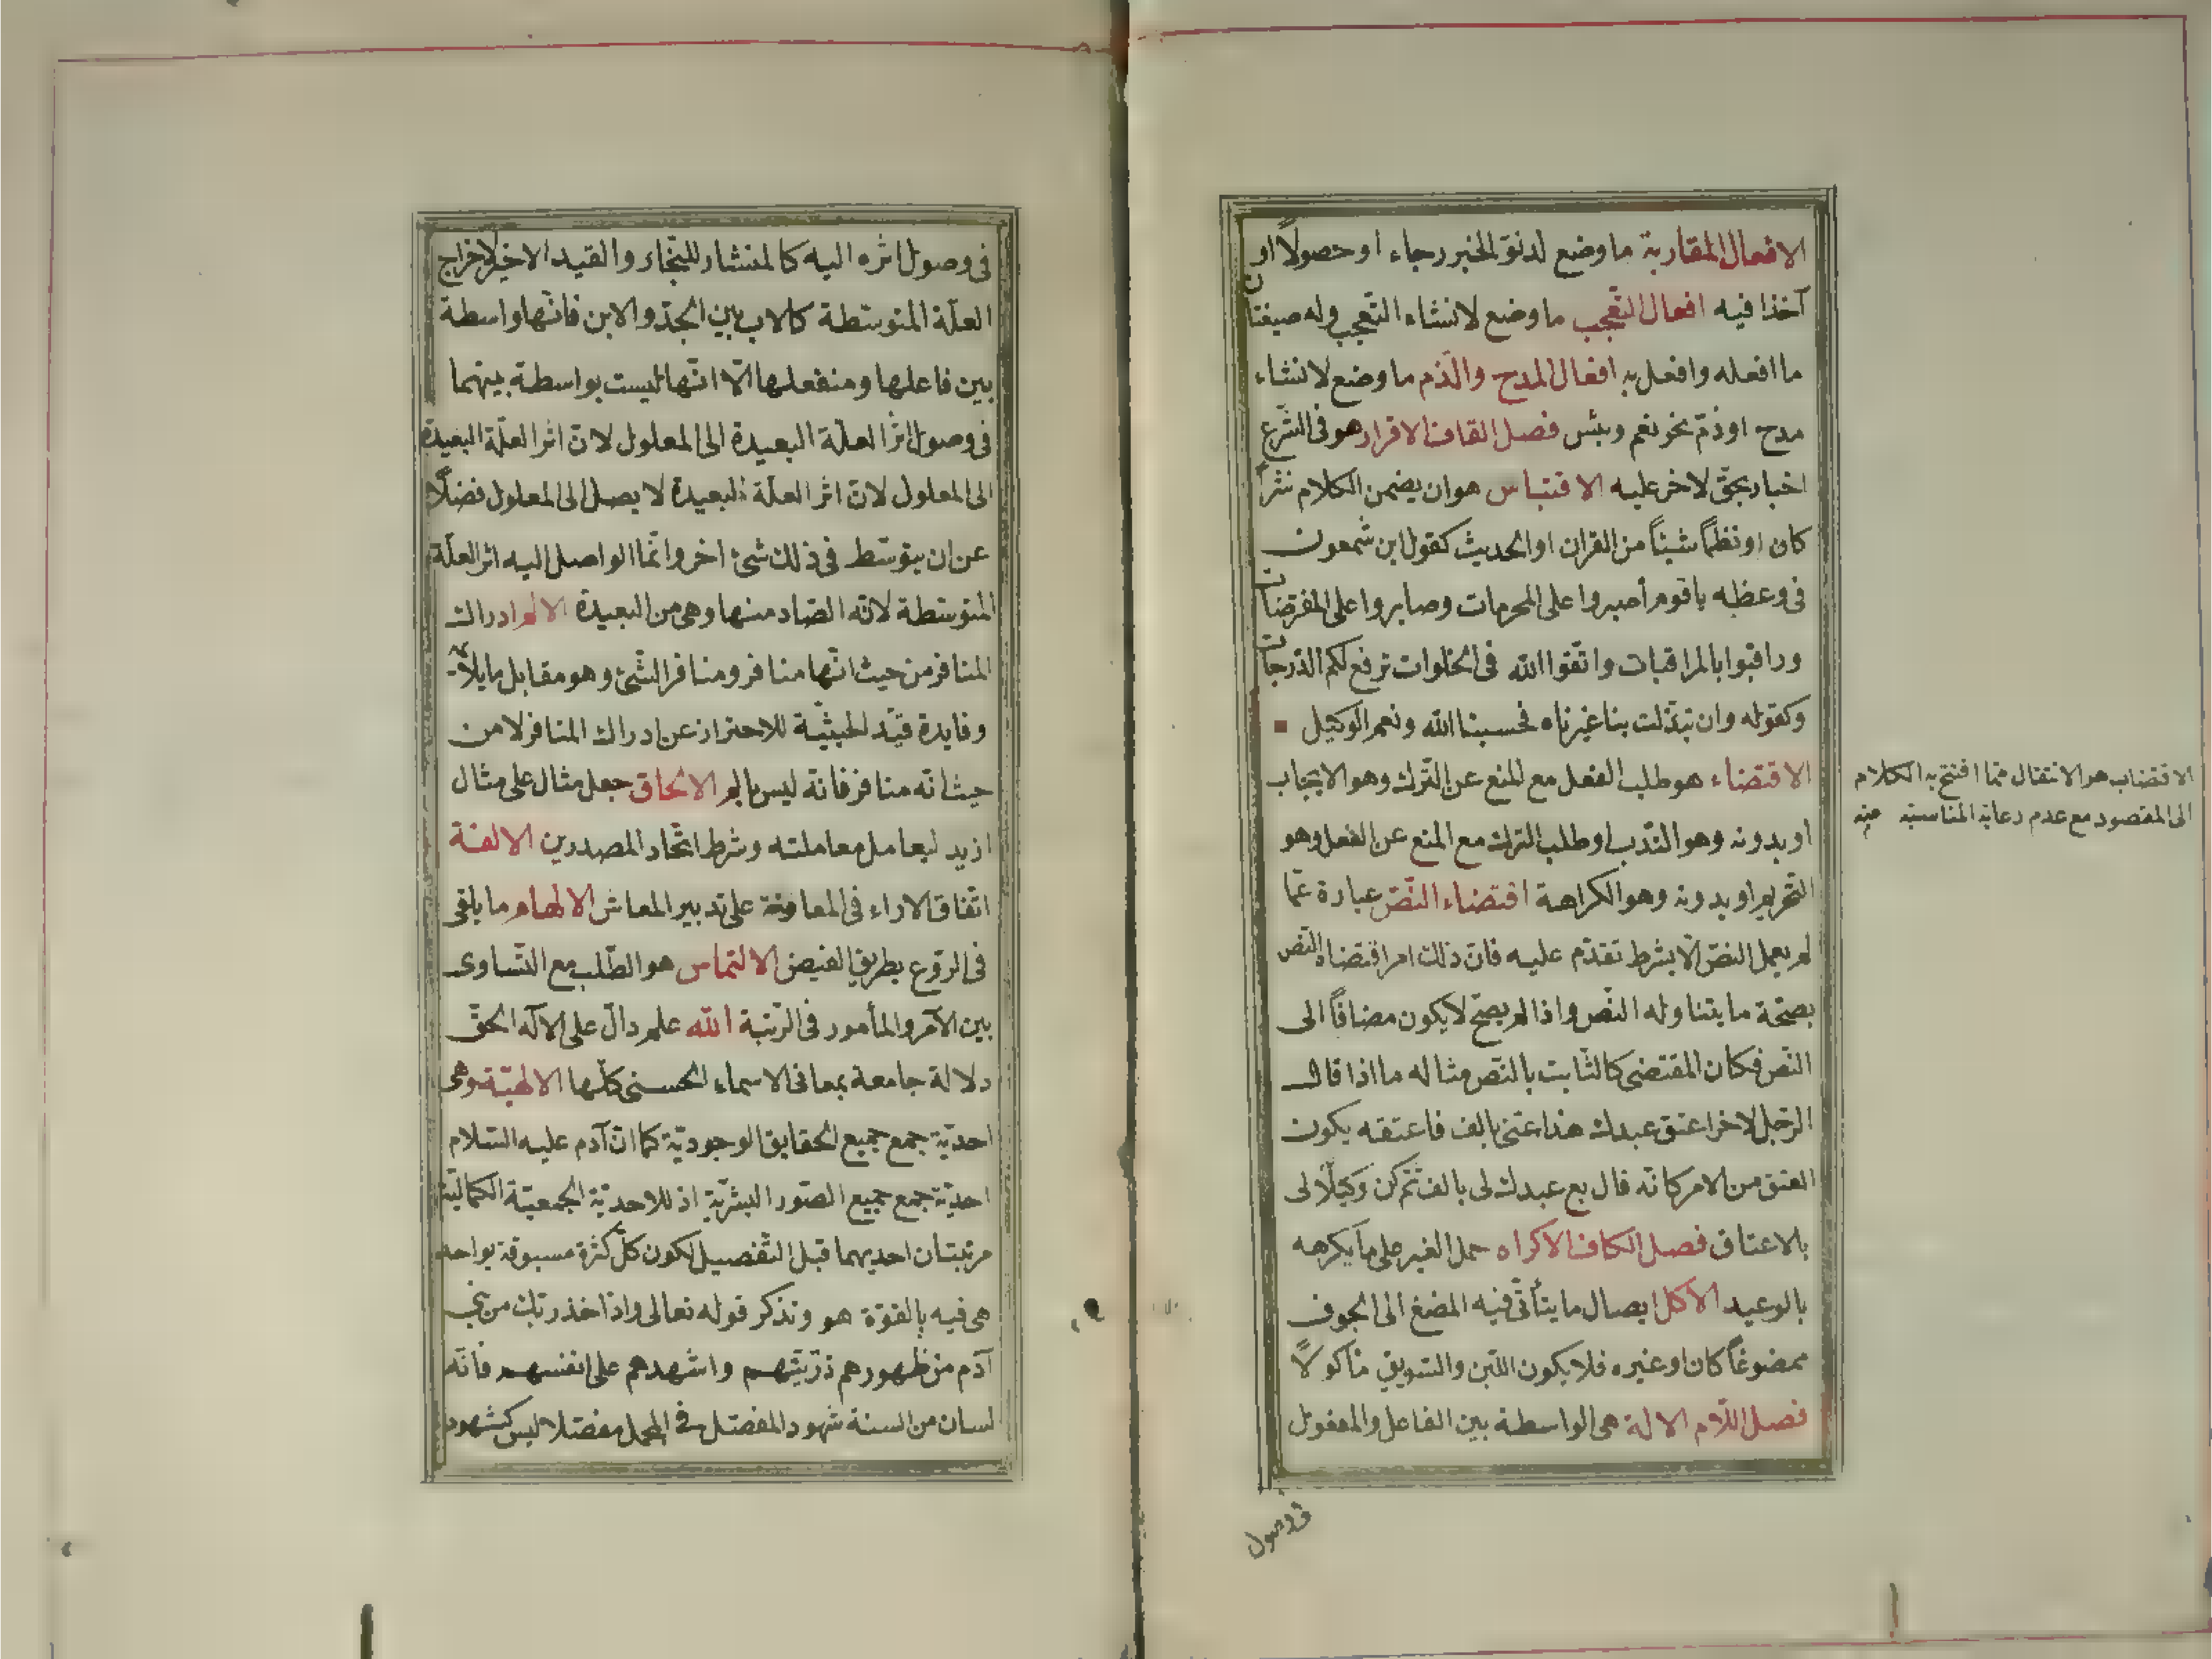 الافعال المقاربة ما وضع لدنو الخبر رجاء او حصولاً او
آخذا فيه افعال التّعجب ما وضع لانشاء التّعجب وله صيغتان
ما افعله وافعل به افعال المدح والّذم ما وضع لانشاء
مدح او ذمّ نحو نعم وبئس فصل القاف الاقرار هو فى الشّرع
اخبار بحقّ لاخر عليه الاقتباس هو ان يضمن الكلام نثراً
كان او نظماً شيئاً من القران او الحديث كقول ابن شمعون
فى وعظه ياقوم أصبروا على المحرمات وصابروا على المفترضات
وراقبوا بالمراقبات واتّقوا الله فى الخلوات ترفع لكم الدّرجات
وكقوله وان تبدّلت بنا غيرناه فحسبنا الله ونعم الوكيل
الاقتضاء هو طلب الفعل مع المنع عن التّرك وهو الايجاب
او بدونه وهو النّدب او طلب الترك مع المنع عن الفعل وهو
التّحريم او بدونه وهو الكراهة اقتضاء النّصّ عبارة عمّا
لم يعمل النصّ الّا بشرط تقدّم عليه فانّ ذلك امر اقتضاه النّص
بصحّة ما يتناوله النّص واذا لم يصحّ لا يكون مضافاً الى
النّص فكان المقتضى كالثّابت بالنّص مثاله ما اذا قال
الرّجل لاخر اعتق عبدك هذا عنّى بالف فاعتقه يكون
العتق من الامر كانّه قال بع عبدك لى بالف ثمّ كن وكيلاً لى
بالاعتاق فصل الكاف الاكراه حمل الغير على ما يكرهه
بالوعيد الاكل ايصال ما يتأتّى فيه المضغ الى الجوف
ممضوغاً كان او غيره فلا يكون اللّبن والسّويق مأكولاً
فصل اللّام الالة هى الواسطة بين الفاعل والمفعول
فى وصول
الاقتضاب هو الانتقال ممّا افتتح به الكلام
الى المقصود مع عدم رعاية المناسبة منه
فى وصول اثره اليه كالمنشار للنجّار والقيد الاخير لاخراج
العلّة المتوسّطة كالاب بين الجدّ والابن فانّها واسطة
بين فاعلها ومنفعلها الّا انّها ليست بواسطة بينهما
فى وصول اثر العلّة البعيدة الى المعلول لانّ اثر العلّة البعيدة
الى المعلول لانّ اثر العلّة البعيدة لا يصل الى المعلول فضلاً
عن ان يتوسّط فى ذلك شئ اخر وانّما الواصل اليه اثر العلّة
المتوسّطة لانّه الصّادر منها وهى من البعيدة الالم ادراك
المنافر من حيث انّها منافر ومنافر الشّئ وهو مقابل ما يلائمه
وفايدة قيّد الحيثيّة للاحتراز عن ادراك المنافر لا من
حيث انّه منافر فانّه ليس بالم الالحاق جعل مثال على مثال
ازيد ليعامل معاملته وشرط اتّحاد المصدرين الالفة
اتّفاق الاراء فى المعاونة على تدبير المعاش الالهام ما يلقى
فى الرّوع بطريق الفيض الالتماس هو الطّلب مع التّساوى
بين الآمر والمأمور فى الرّتبة الله علم دالّ على الاله الحقّ
دلالة جامعة بمعانى الاسماء الحسنى كلّها الالهيّة وهى
احديّة جمع جميع الحقايق الوجوديّة كما انّ آدم عليه السّلام
احديّة جمع جميع الصّور البشريّة اذ للاحديّة الجمعيّة الكماليّة
مرتبتان احديهما قبل التّفصيل لكون كلّ كثرة مسبوقة بواحد
هى فيه بالقوّة هو وتذكر قوله تعالى واذا خذ ربّك من بنى
آدم من ظهورهم ذرّيتهم واشهدهم على انفسهم فانّه
لسان من السنة شهود المفصّل فى المجمل مفصّلا ليس كشهود